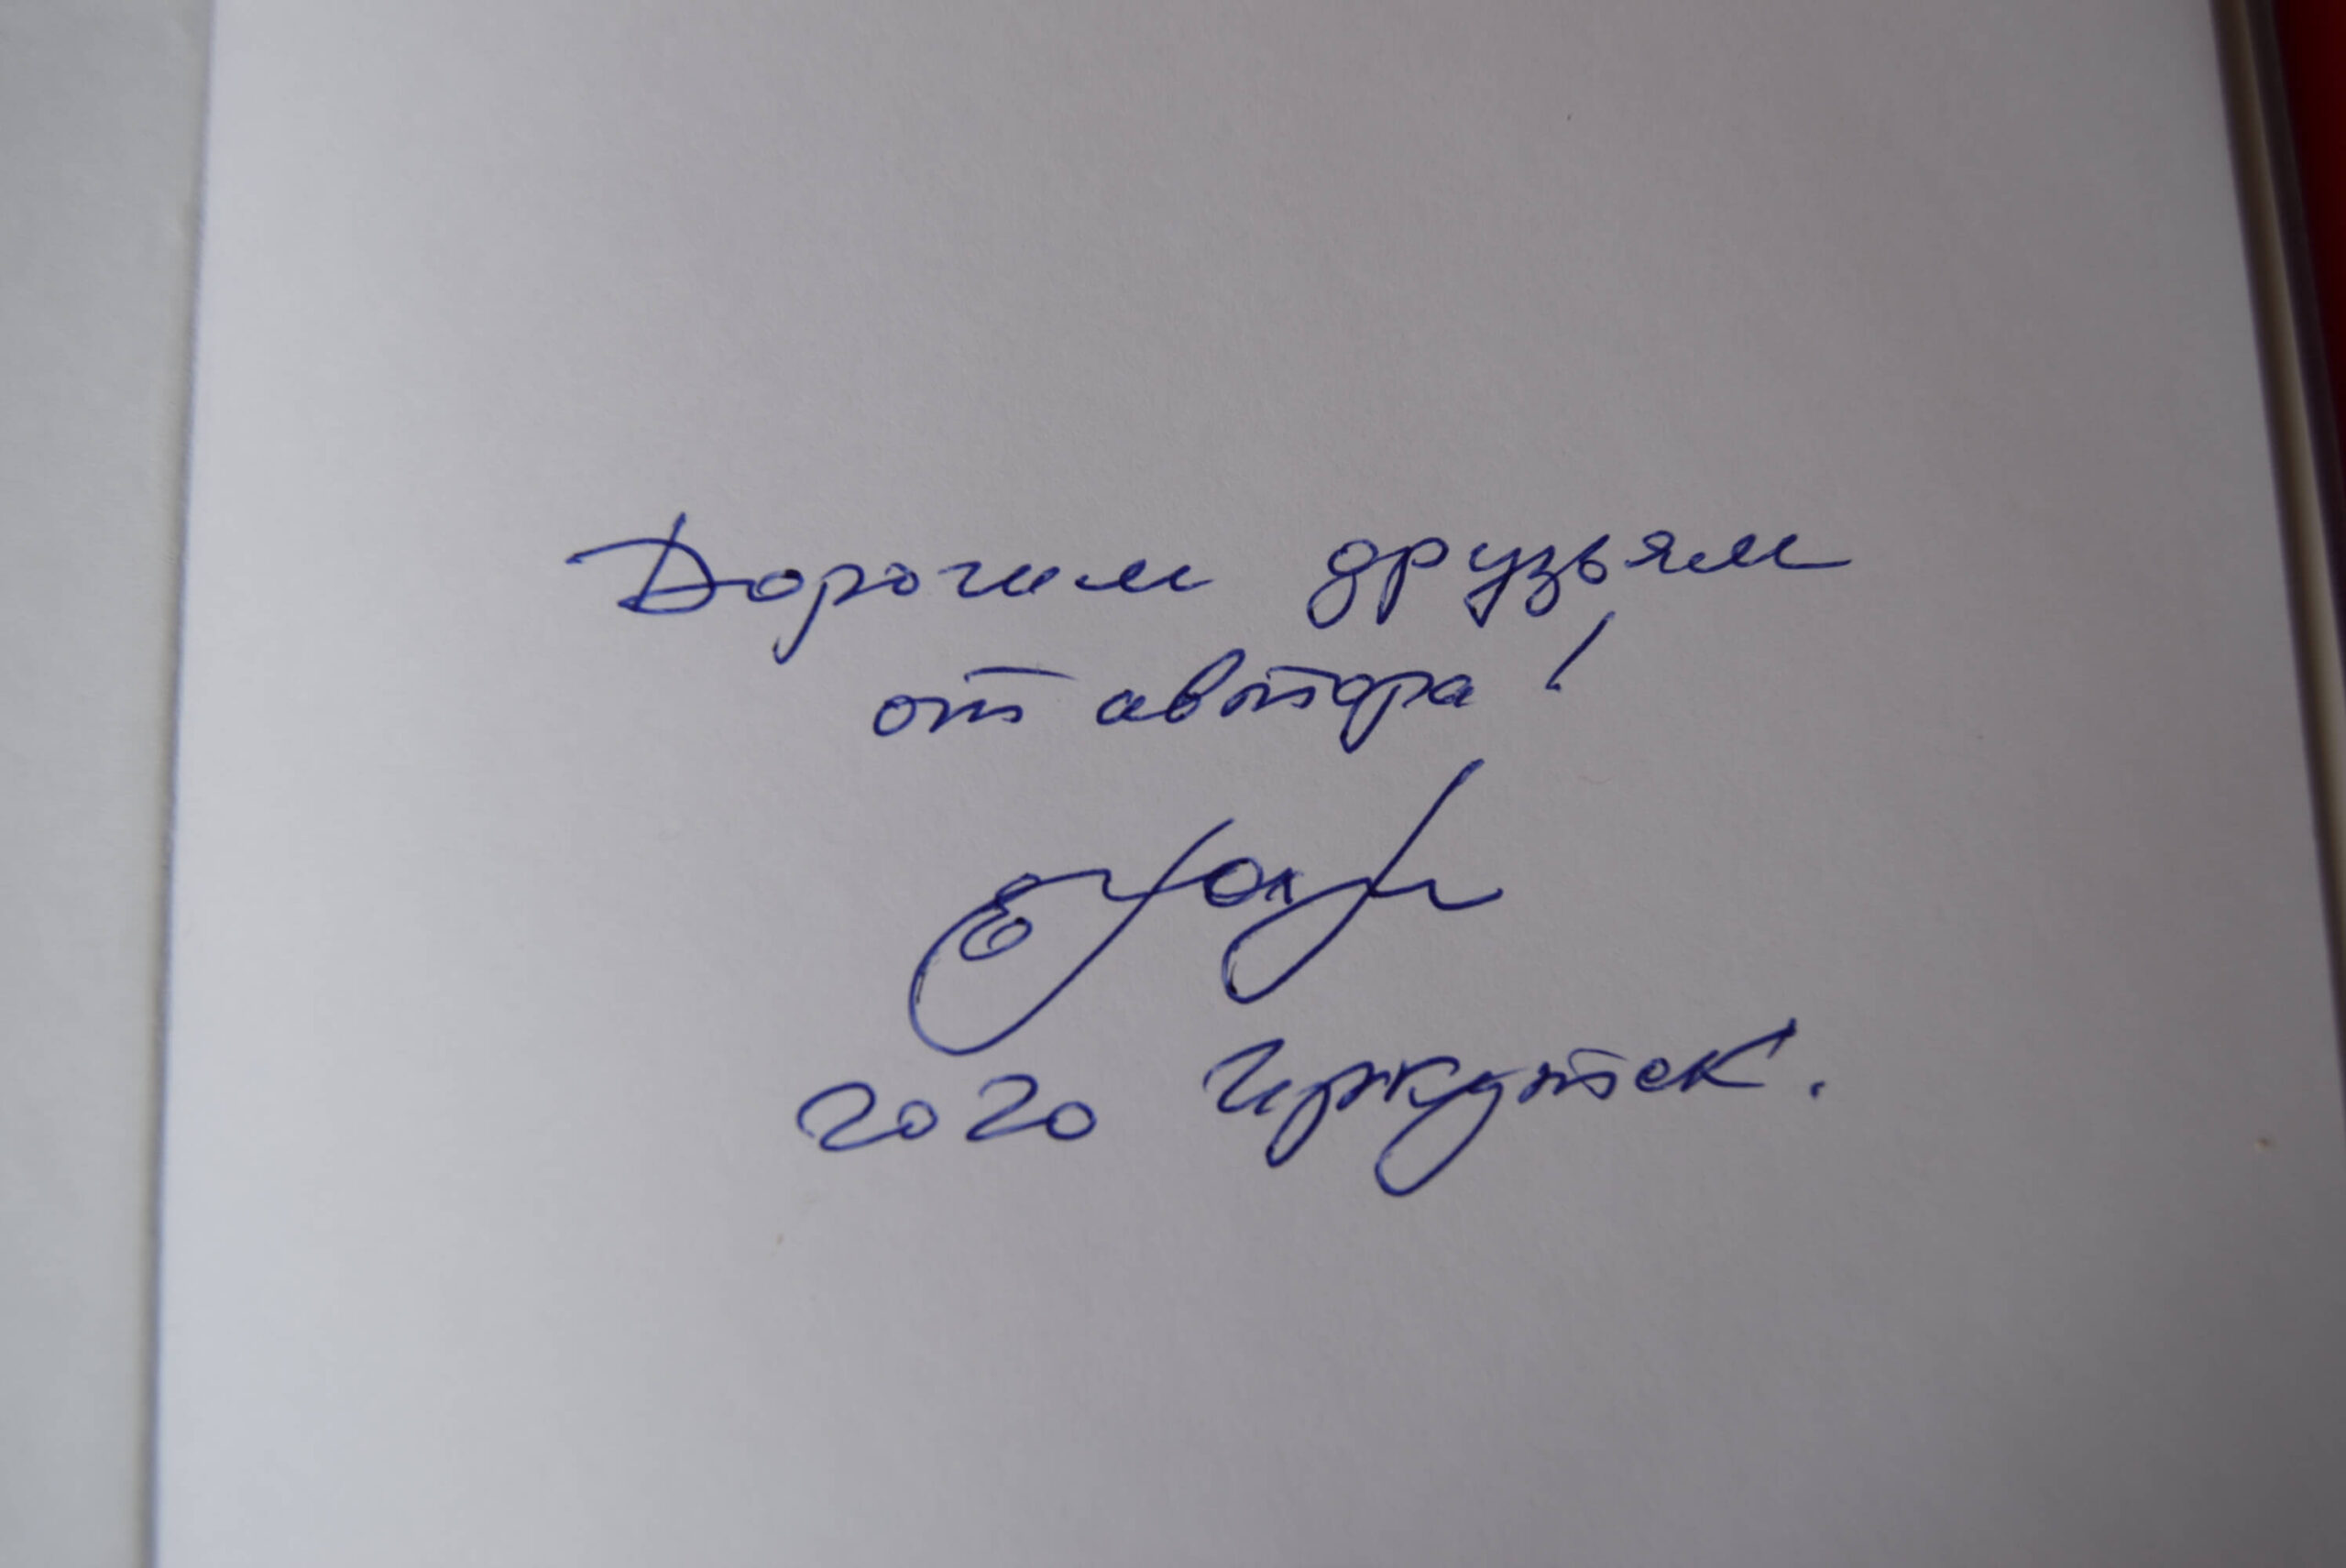 Дорогим друзьям
от автора!
2020 Иркутск.